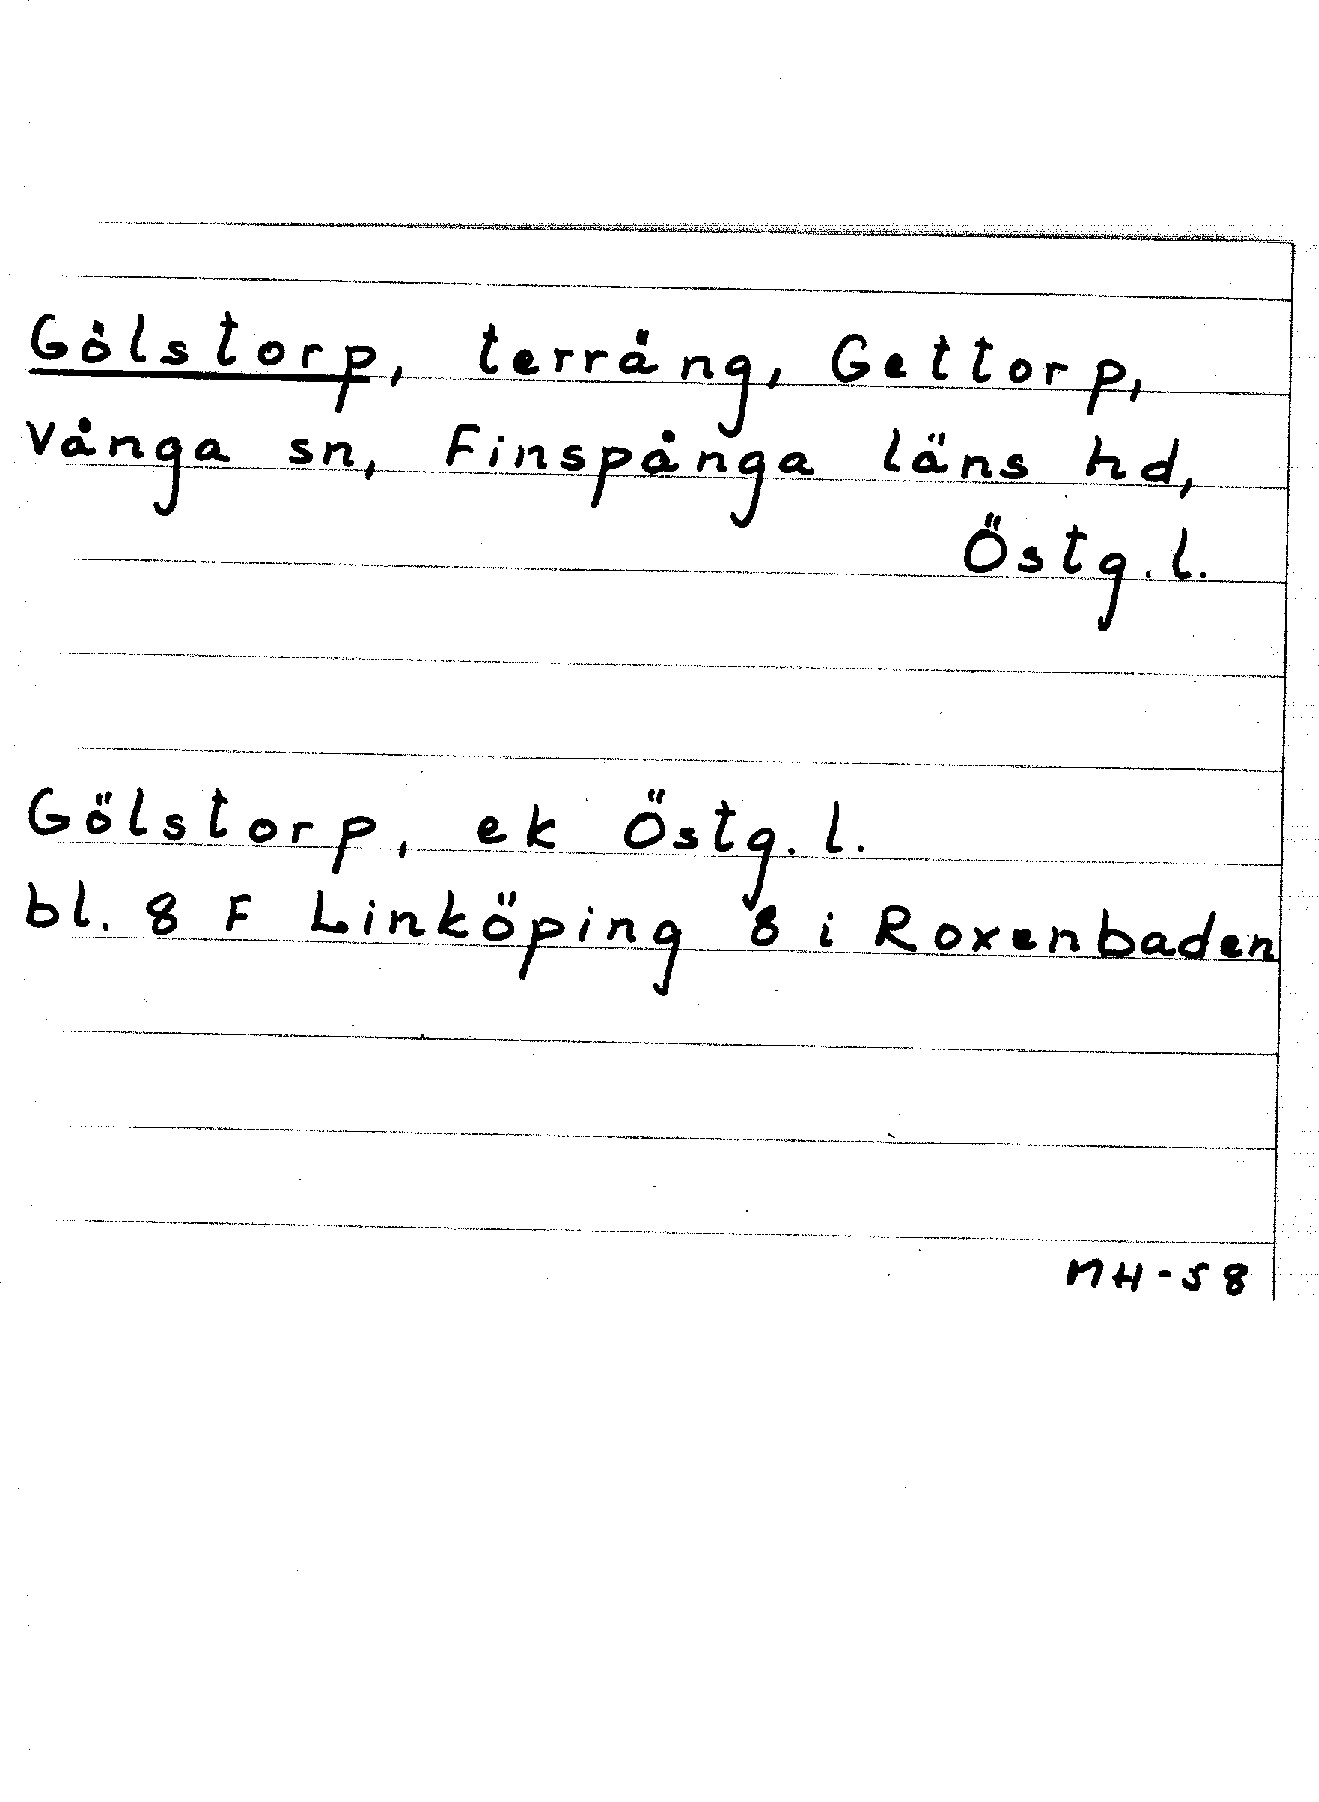 Gölstorp, terräng, Gettorp,
Vånga sn, Finspånga läns hd,
Östg.l.
Gölstorp, ek Östg.l.
bl. 8 F Linköping 8 i Roxenbaden
MH-58